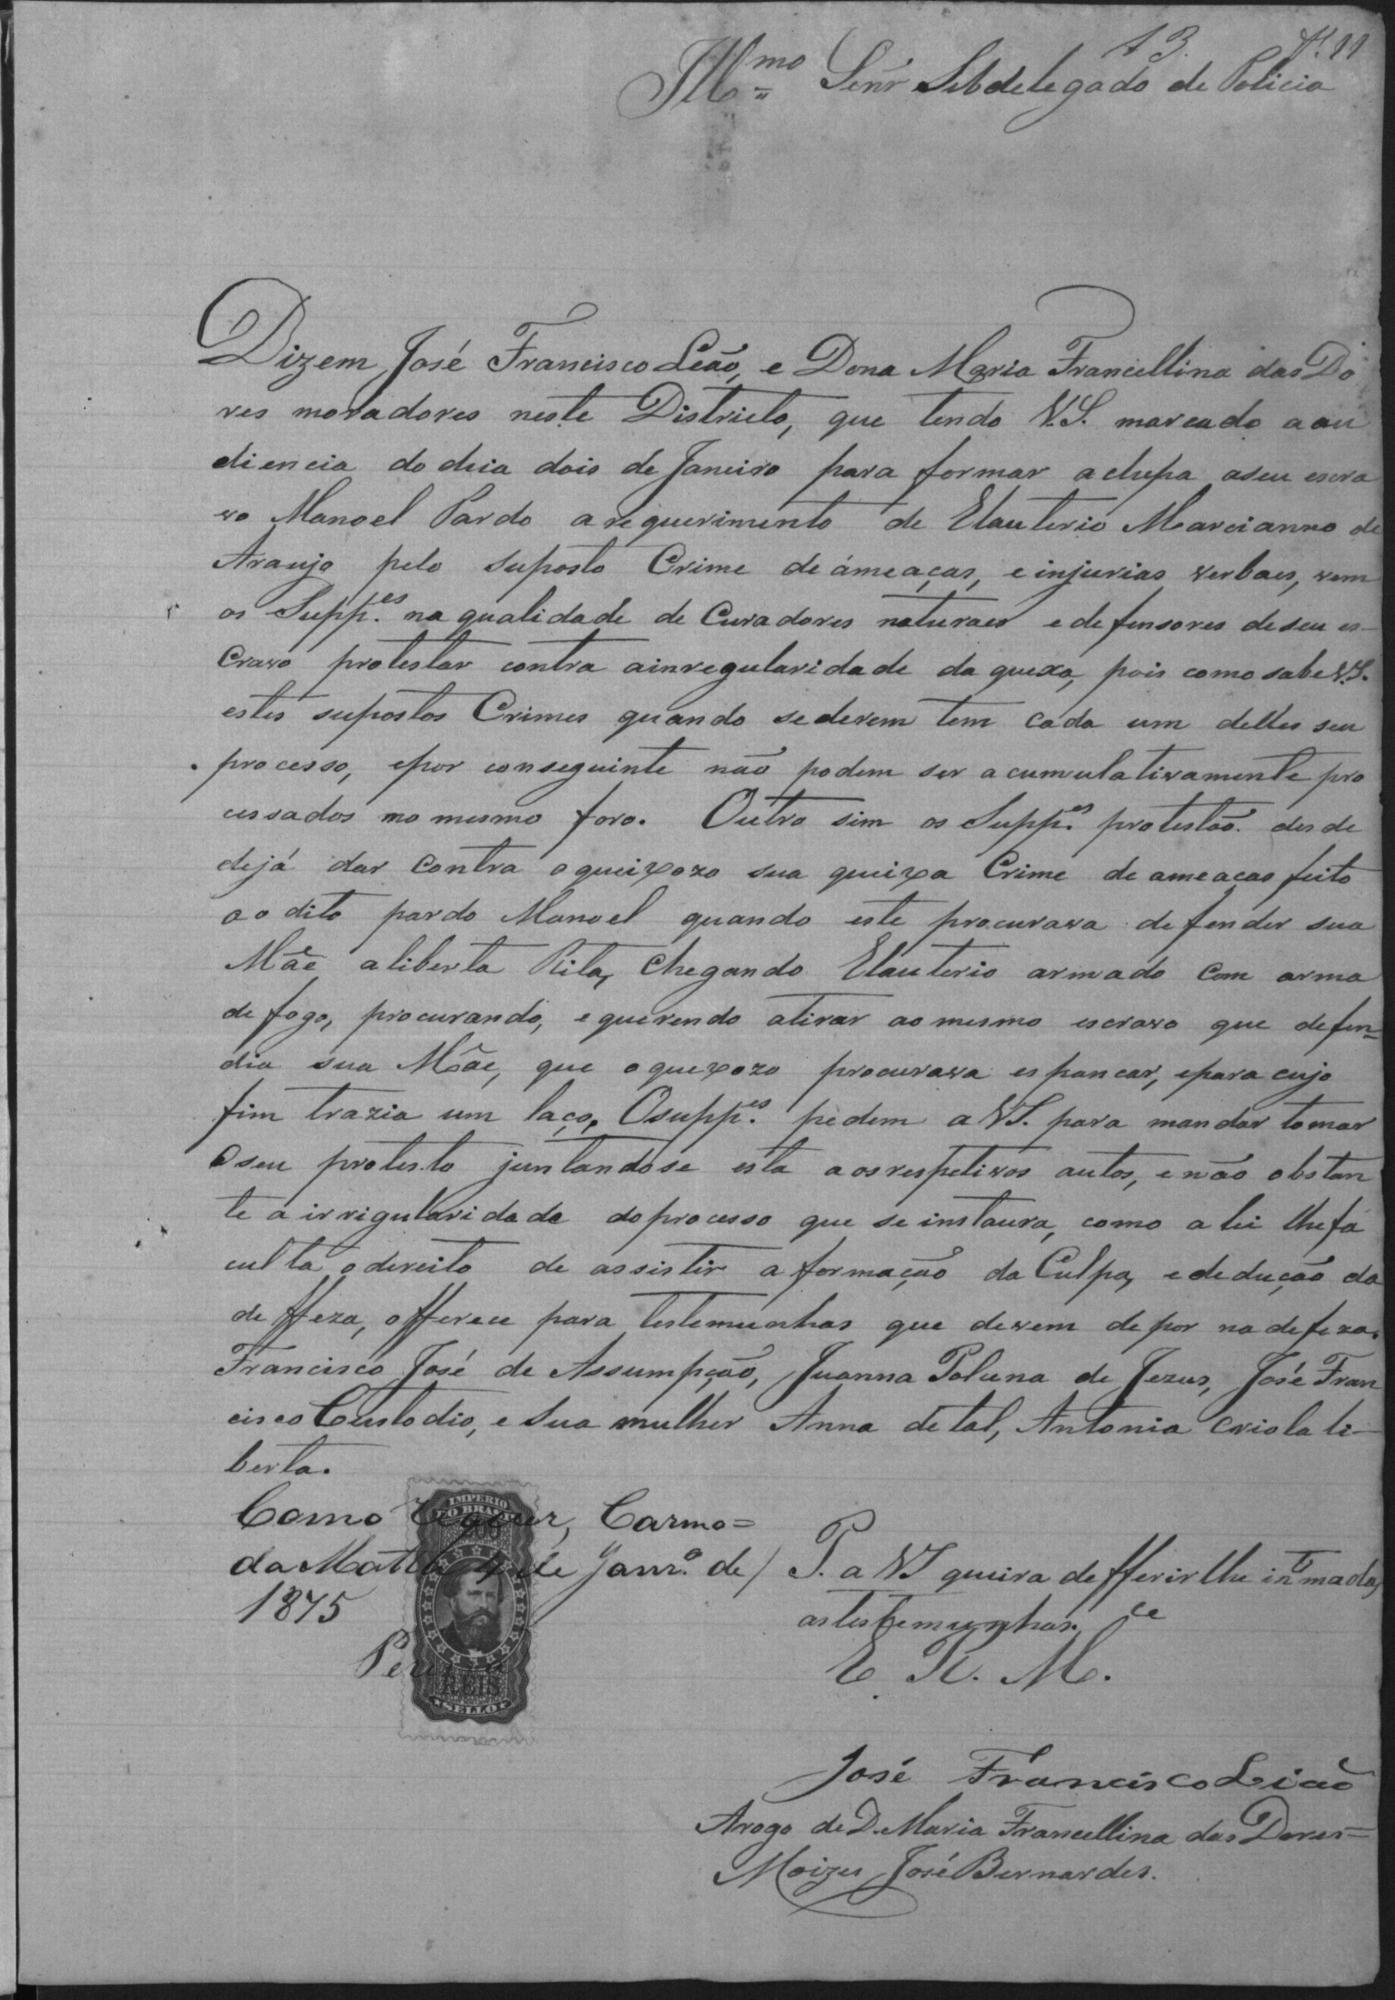 13. fl. 11
Illmo Senr Subdelegado de Policia
Dizem José Francisco Leão, e Dona Maria Francellina das Do
res moradores neste Districto, que tendo V.S. marcado a au
diencia do dia dois de Janeiro para formar a clupa a seu escra
vo Manoel Pardo a requerimento de Elauterio Marcianno de
Araujo pelo suposto Crime de ámeaças, e injurias verbaes, vem
os Supp.es na qualidade de Curadores naturaes e defensores de seu es-
cravo protestar contra a inregularidade da quexa, pois como sabe V.S.
estes supostos Crimes quando se derem tem cada um delles seu
processo, e por conseguinte não podem ser acumulativamente pro
cessados no mesmo foro. Outro sim os Supp.es protestão desde
dejá dar contra o queixozo sua queixa Crime de ameaças feito
ao dito pardo Manoel quando este procurava defender sua
Mãe a liberta Rita, chegando Elauterio armado com arma
de fogo, procurando, e querendo atirar ao mesmo escravo que defen=
dia sua Mãe, que o quexozo procurava espancar, e para cujo
fim trazia um laço. Osupp.es pedem a VS. para mandar tomar
o seu protesto juntandose esta aos respetivos autos, e não obstan
te a irrigularidade do processo que se instaura, como a lei lhe fa
culta o dereito de assistir a formação da Culpa, e dedução da
deffeza, offerece para testemunhas que devem depor na defeza.
Francisco José de Assumpção, Juanna Poluna de Jezus, José Fran
cisco Custodio, e sua mulher Anna de tal, Antonia criola li-
berta.
Como requer, Carmo=
da Matta 4 de Janro. de /
1875
IMPERIO
DO BRASIL
200
REIS
SELLO
P. a VS queira defferir lhe intmadas
as testemunhas.
E. R. M.ce
José Francisco Lião
Arogo de D. Maria Francellina das Dores=
Moizes José Bernardes.